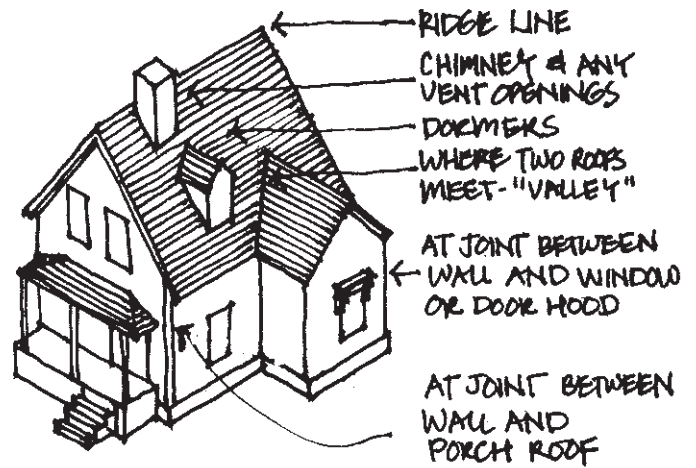 RIDGE LINE
CHIMNEY & ANY
VENT OPENINGS
DORMERS
WHERE TWO ROOFS
MEET - "VALLEY"
AT JOINT BETWEEN
WALL AND WINDOW
OR DOOR HOOD
AT JOINT BETWEEN
WALL AND
PORCH ROOF